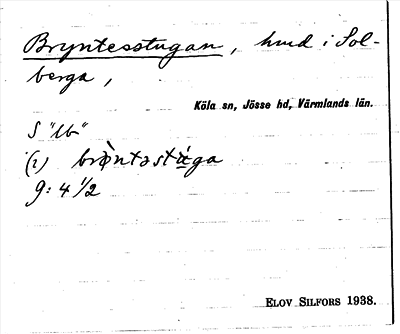 Bryntesstugan, hmd i Sol-
berga,
Köla sn, Jösse hd, Värmlands län.
S "Ub"
(i) bròntəstùga
g: 4 1/2
ELOV SILFORS 1938.